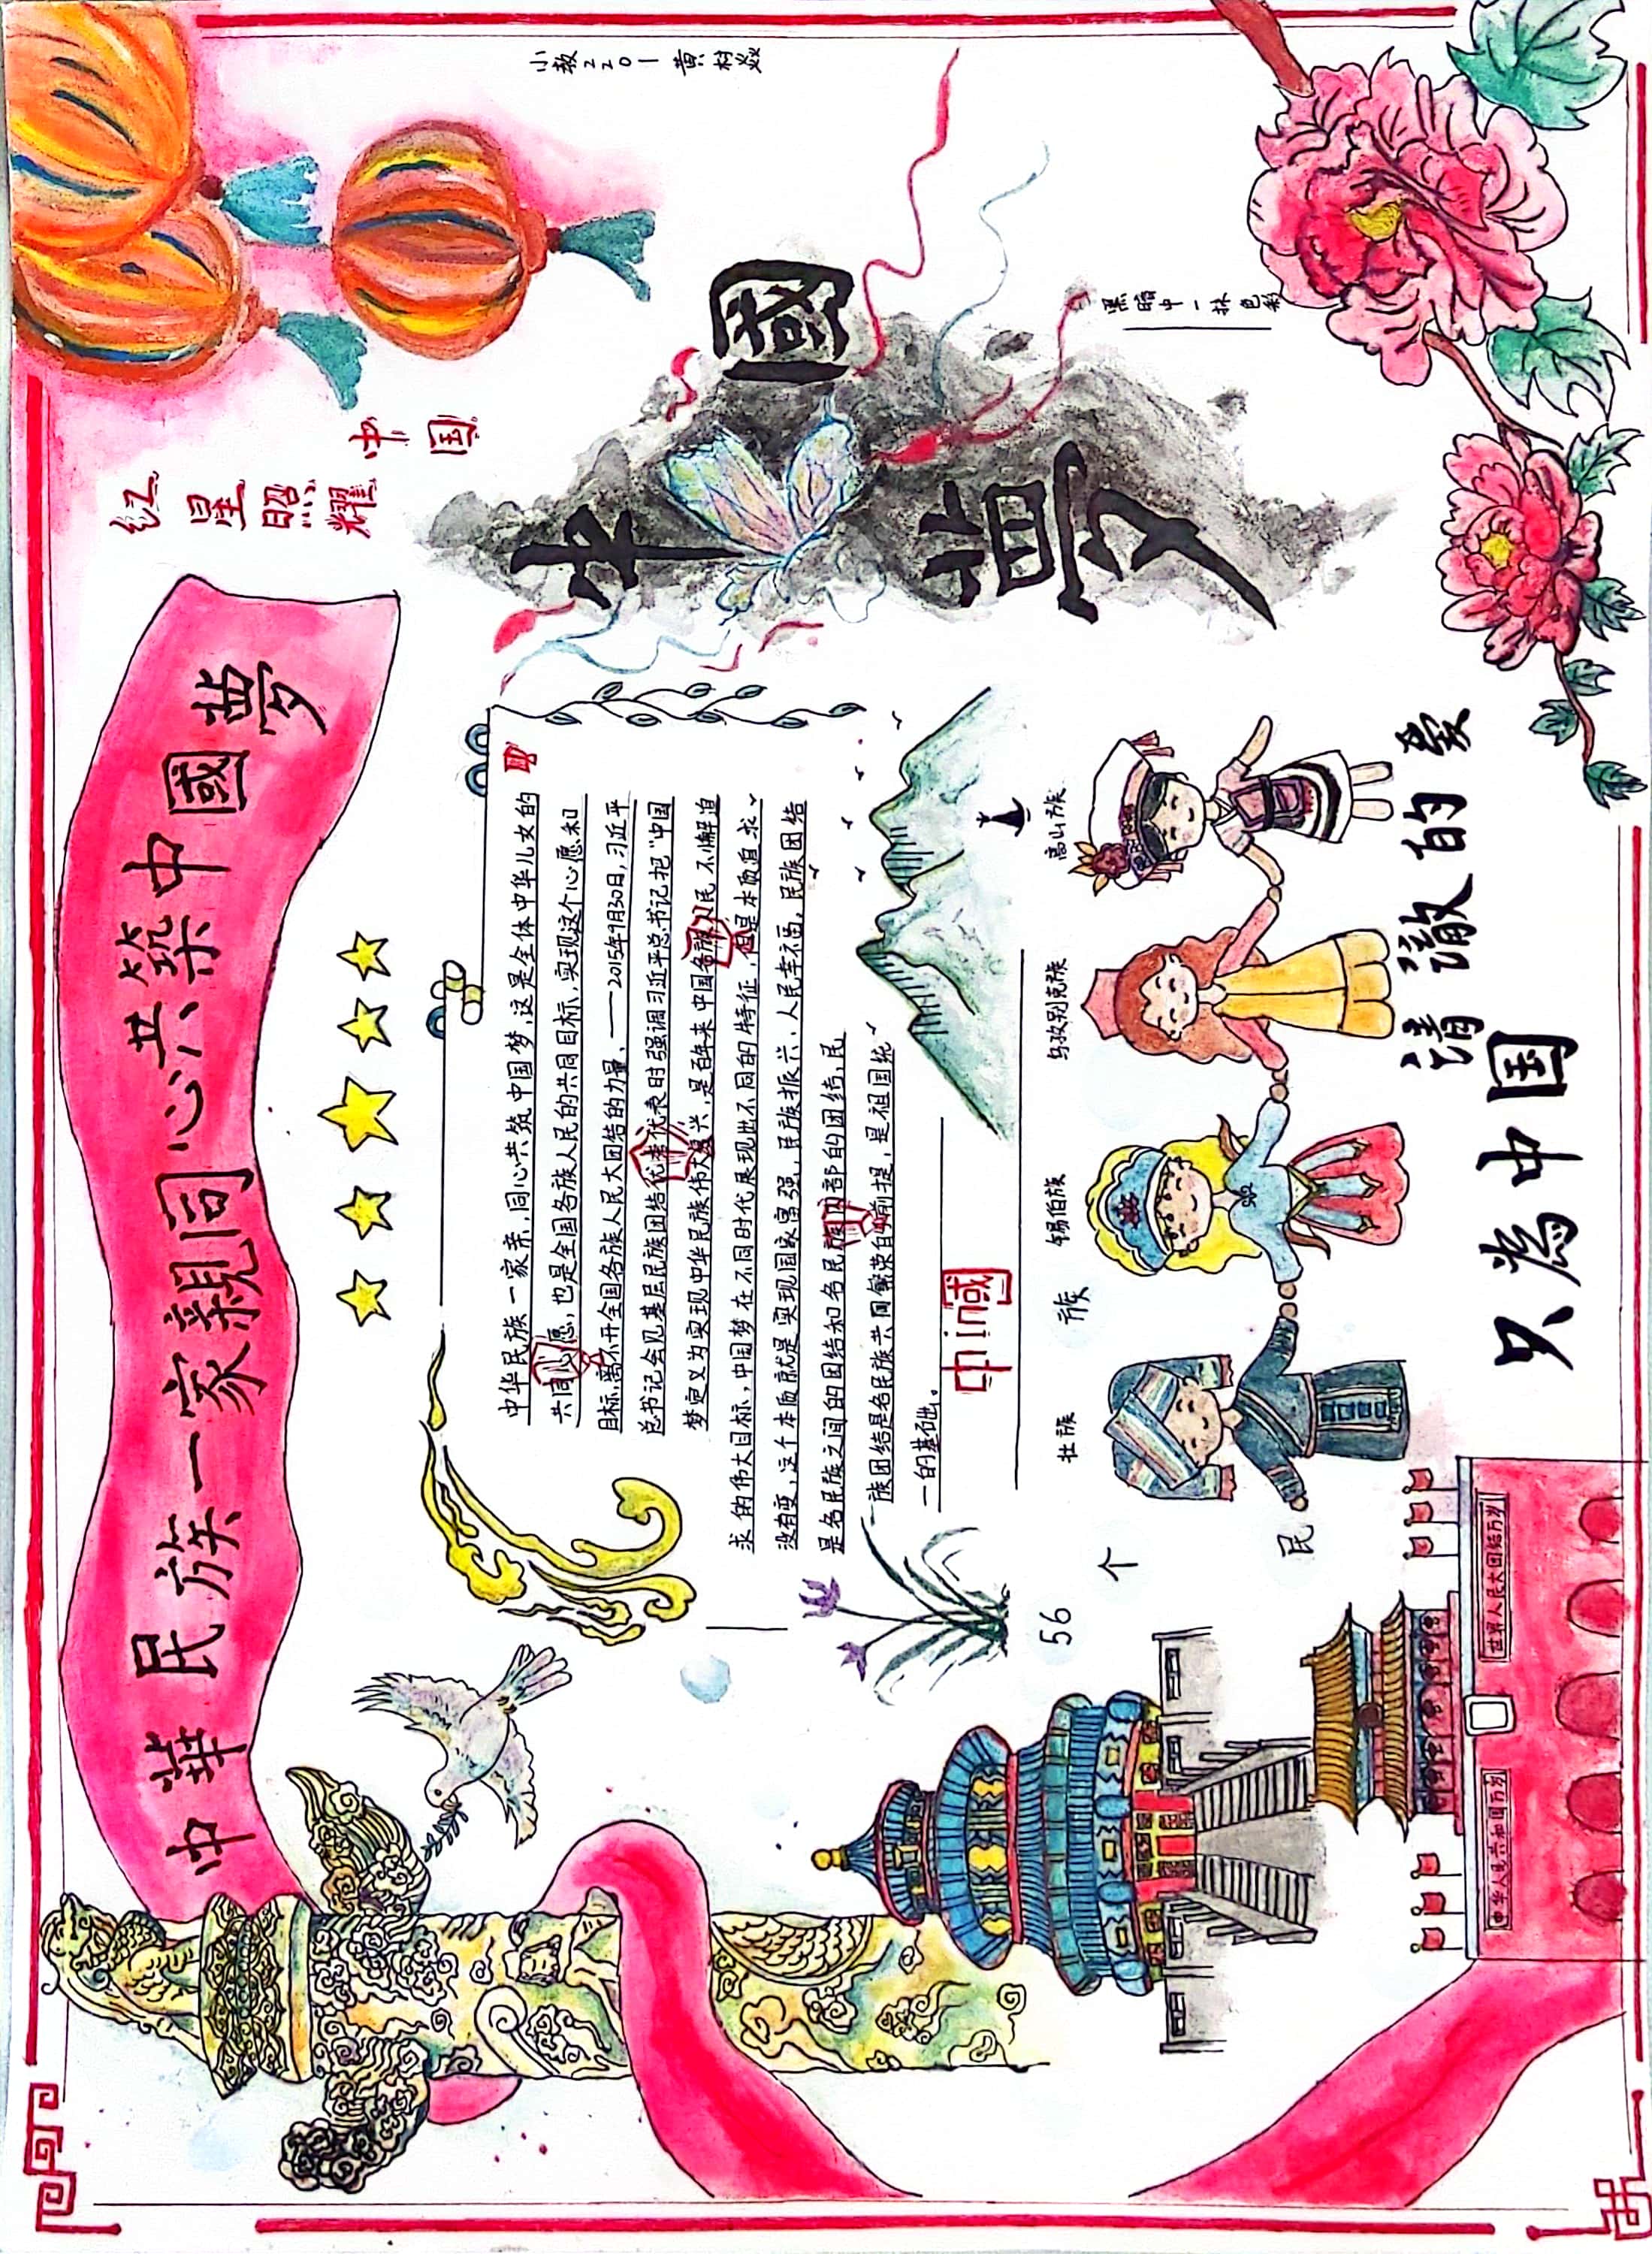 小教2201 黄
中華民族一家親同心共築中國夢
红星照耀
中国
中國
夢
黑暗中一抹色彩
中华民族一家亲,同心共筑中国梦,这是全体中华儿女的
共同心愿,也是全国各族人民的共同目标,实现这个心愿和
目标,离不开全国各族人民大团结的力量、——2015年9月30日,习近平
总书记会见基层民族团结优秀代表时强调习近平总书记把“中国
梦定义为实现中华民族伟大复兴,是百年来中国各族人民不懈追
求的伟大目标,中国梦在不同时代展现出不同的特征,但是本质追求
没有变,这个本质就是实现国家富强,民族振兴、人民幸福,民族团结
是各民族之间的团结和各民族内部的团结,民
族团结是各民族共同繁荣自前提,是祖国统
一的基础。
中in國
56个民族
壮族
锡伯族
乌孜别克族
高山族
清澈的爱
只為中国
中华人民共和国万岁
世界人民大团结万岁